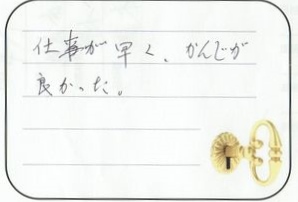 仕事が早く、かんじが
良かった。